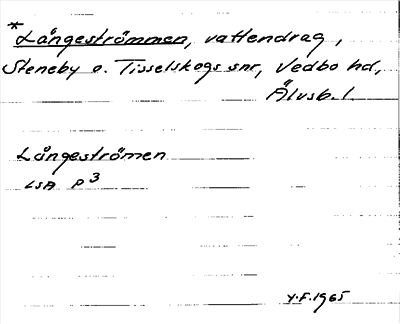 *Långeströmmen, vattendrag,
Steneby o. Tisselskogs snr, Vedbo hd,
Älvsb. l.
Långeströmen
LSA P3
Y.F. 1965